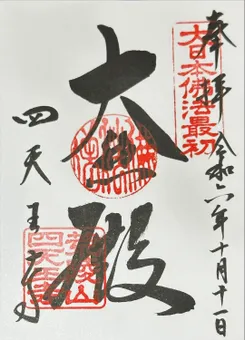 奉拝
令和六年十月十一日
大日本佛法最初
大殿
四天王寺
荒陵山
四天王寺